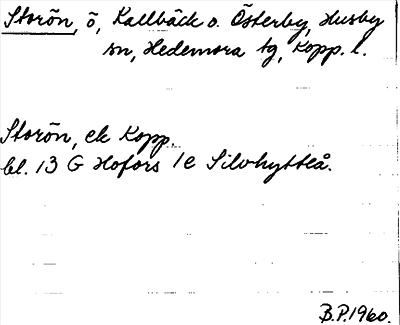 Storön, ö, Kallbäck o. Österby, Husby
sn, Hedemora tg, Kopp. l.
Storön, ek Kopp.
bl. 13 G Hofors 1e Silvhytteå.
B.P.1960.